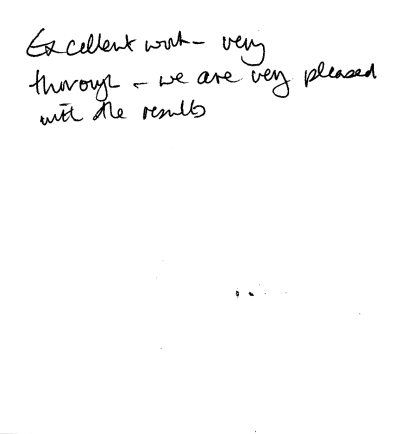 Excellent work - very
thorough - we are very pleased
with the results